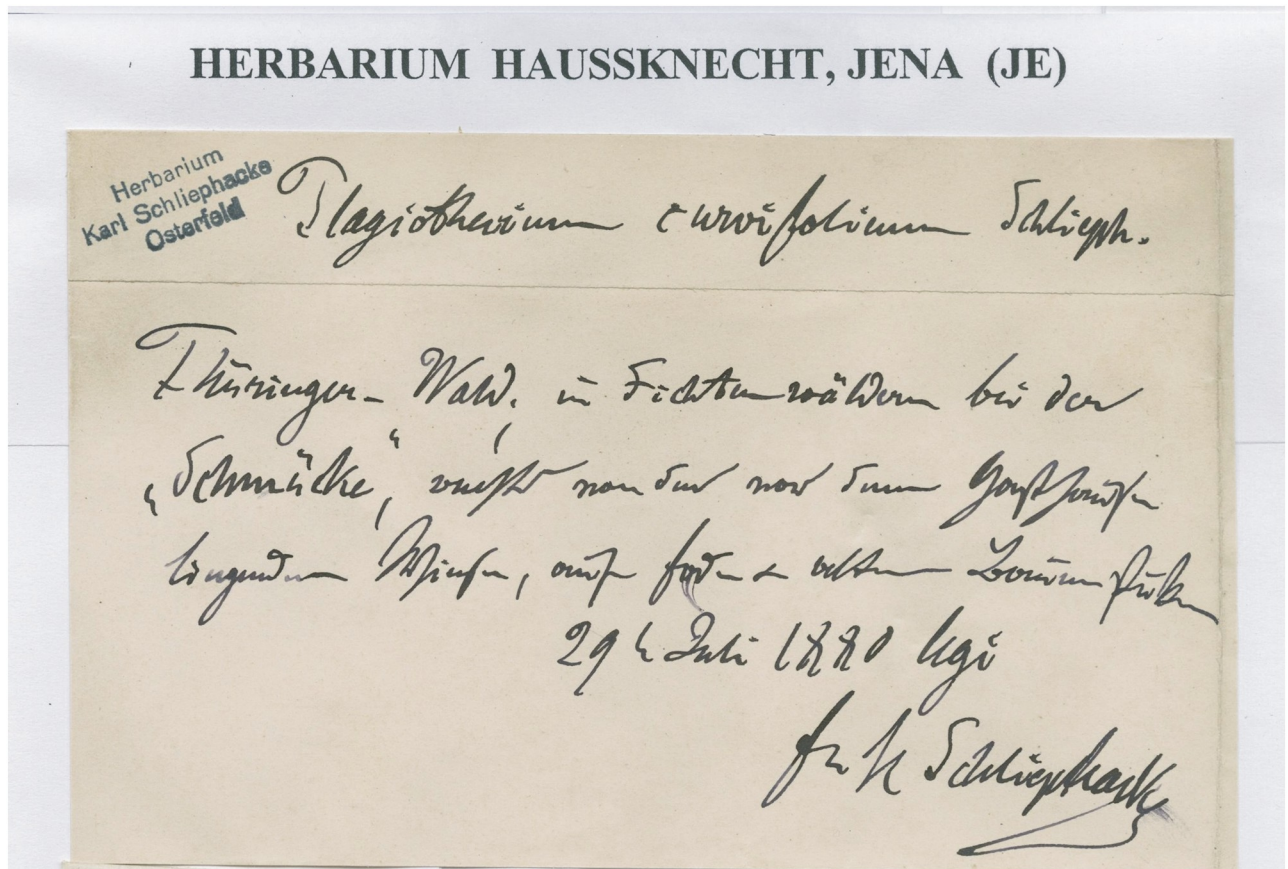 HERBARIUM HAUSSKNECHT, JENA (JE)
Herbarium
Karl Schliephacke
Osterfeld
Plagiothecium curvifoliumSchlieph.
Thüringer-Wald, in Fichtenwäldern bei der
„Schmücke“, rechts von der vor dem Gasthause
liegenden Wiese, auf Erde & alten Baumstücken
29 t Juli 1880 lgi
Schliephacke